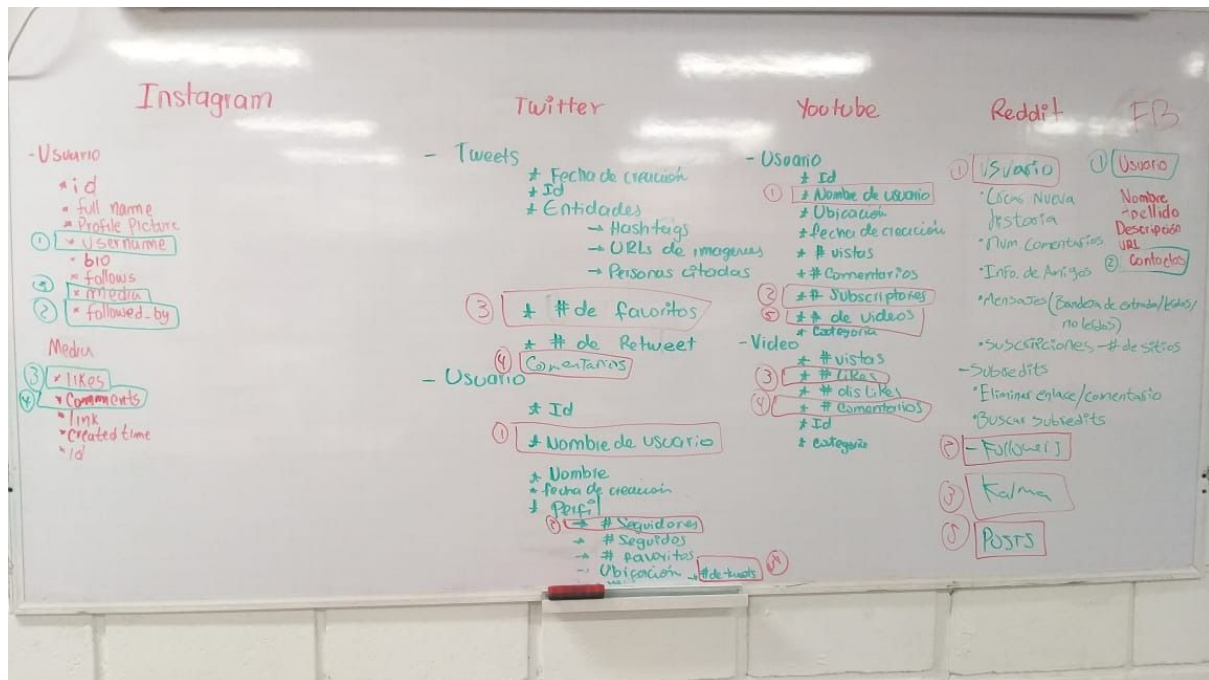 Instagram
- Usuario
* id
* full name
* Profile Picture
① * Username
* bio
* follows
* media
② * followed_by
Media
③ * likes
④ * Comments
* link
* Created time
* id
Twitter
- Tweets
* Fecha de creación
* Id
* Entidades
→ Hashtags
→ URLs de imagenes
→ Personas citadas
③ * # de favoritos
* # de Retweet
④ Comentarios
- Usuario
* Id
① * Nombre de usuario
* Nombre
* fecha de creación
* Perfil
② → # Seguidores
→ # Seguidos
→ # favoritos
→ Ubicación → # de tweets
Youtube
- Usuario
* Id
① * Nombre de usuario
* Ubicación
* fecha de creación
* # vistas
* # Comentarios
② * # Subscriptores
⑤ * # de videos
* Categoria
- Video
* # vistas
③ * # likes
* # dislikes
④ * # Comentarios
* Id
* categoria
Reddit
① Usuario
* Nueva
* Num. Comentarios
* Info. de Amigos
* Mensajes (Bandeja de entrada/leidos/
no leidos)
* Suscripciones → # de sitios
- Subredits
* Eliminar enlace/comentario
* Buscar Subredits
② - Followers
③ Kalma
⑤ Posts
FB
① Usuario
Nombre
Apellido
Descripción
URL
② Contactos